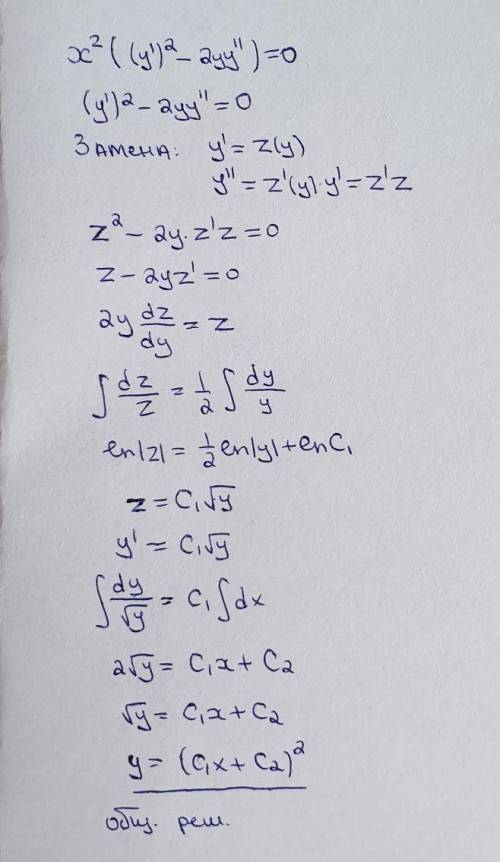 x²((y')² - 2yy'')=0
(y')² - 2yy''=0
Замена: y' = z(y)
y'' = z'(y)·y' = z'z
z² - 2y·z'z = 0
z - 2yz' = 0
2y dz/dy = z
∫ dz/z = 1/2 ∫ dy/y
ln|z| = 1/2 ln|y| + ln C₁
z = C₁√y
y' = C₁√y
∫ dy/√y = C₁ ∫ dx
2√y = C₁x + C₂
√y = C₁x + C₂
y = (C₁x + C₂)²
общ. реш.